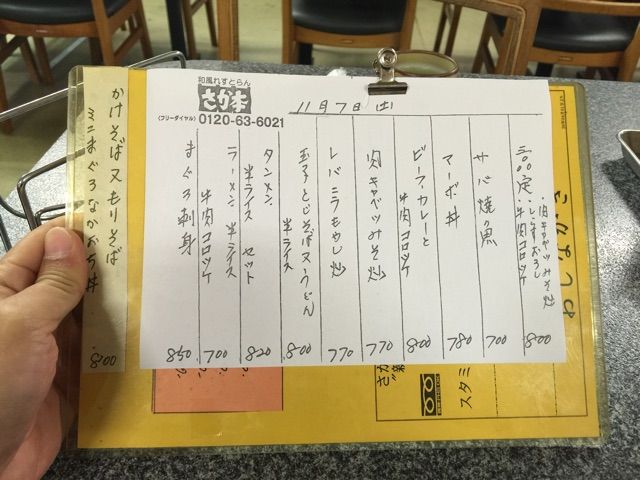 和風れすとらん
さかき
(フリーダイヤル) 0120-63-6021
11月7日(土)
・肉キャベツみそ炒
・しらすおろし
・牛肉コロッケ
800
サバ焼魚
700
マーボ丼
780
ビーフカレーと
牛肉コロッケ
800
肉キャベツみそ炒
770
レバニラもやし炒
770
玉子とじそば又うどん
半ライス
800
タンメン
半ライス セット
820
ラーメン 半ライス
牛肉コロッケ
700
まぐろ刺身
850
かけそば又もりそば
ミニまぐろなかおち丼
800
スタミ